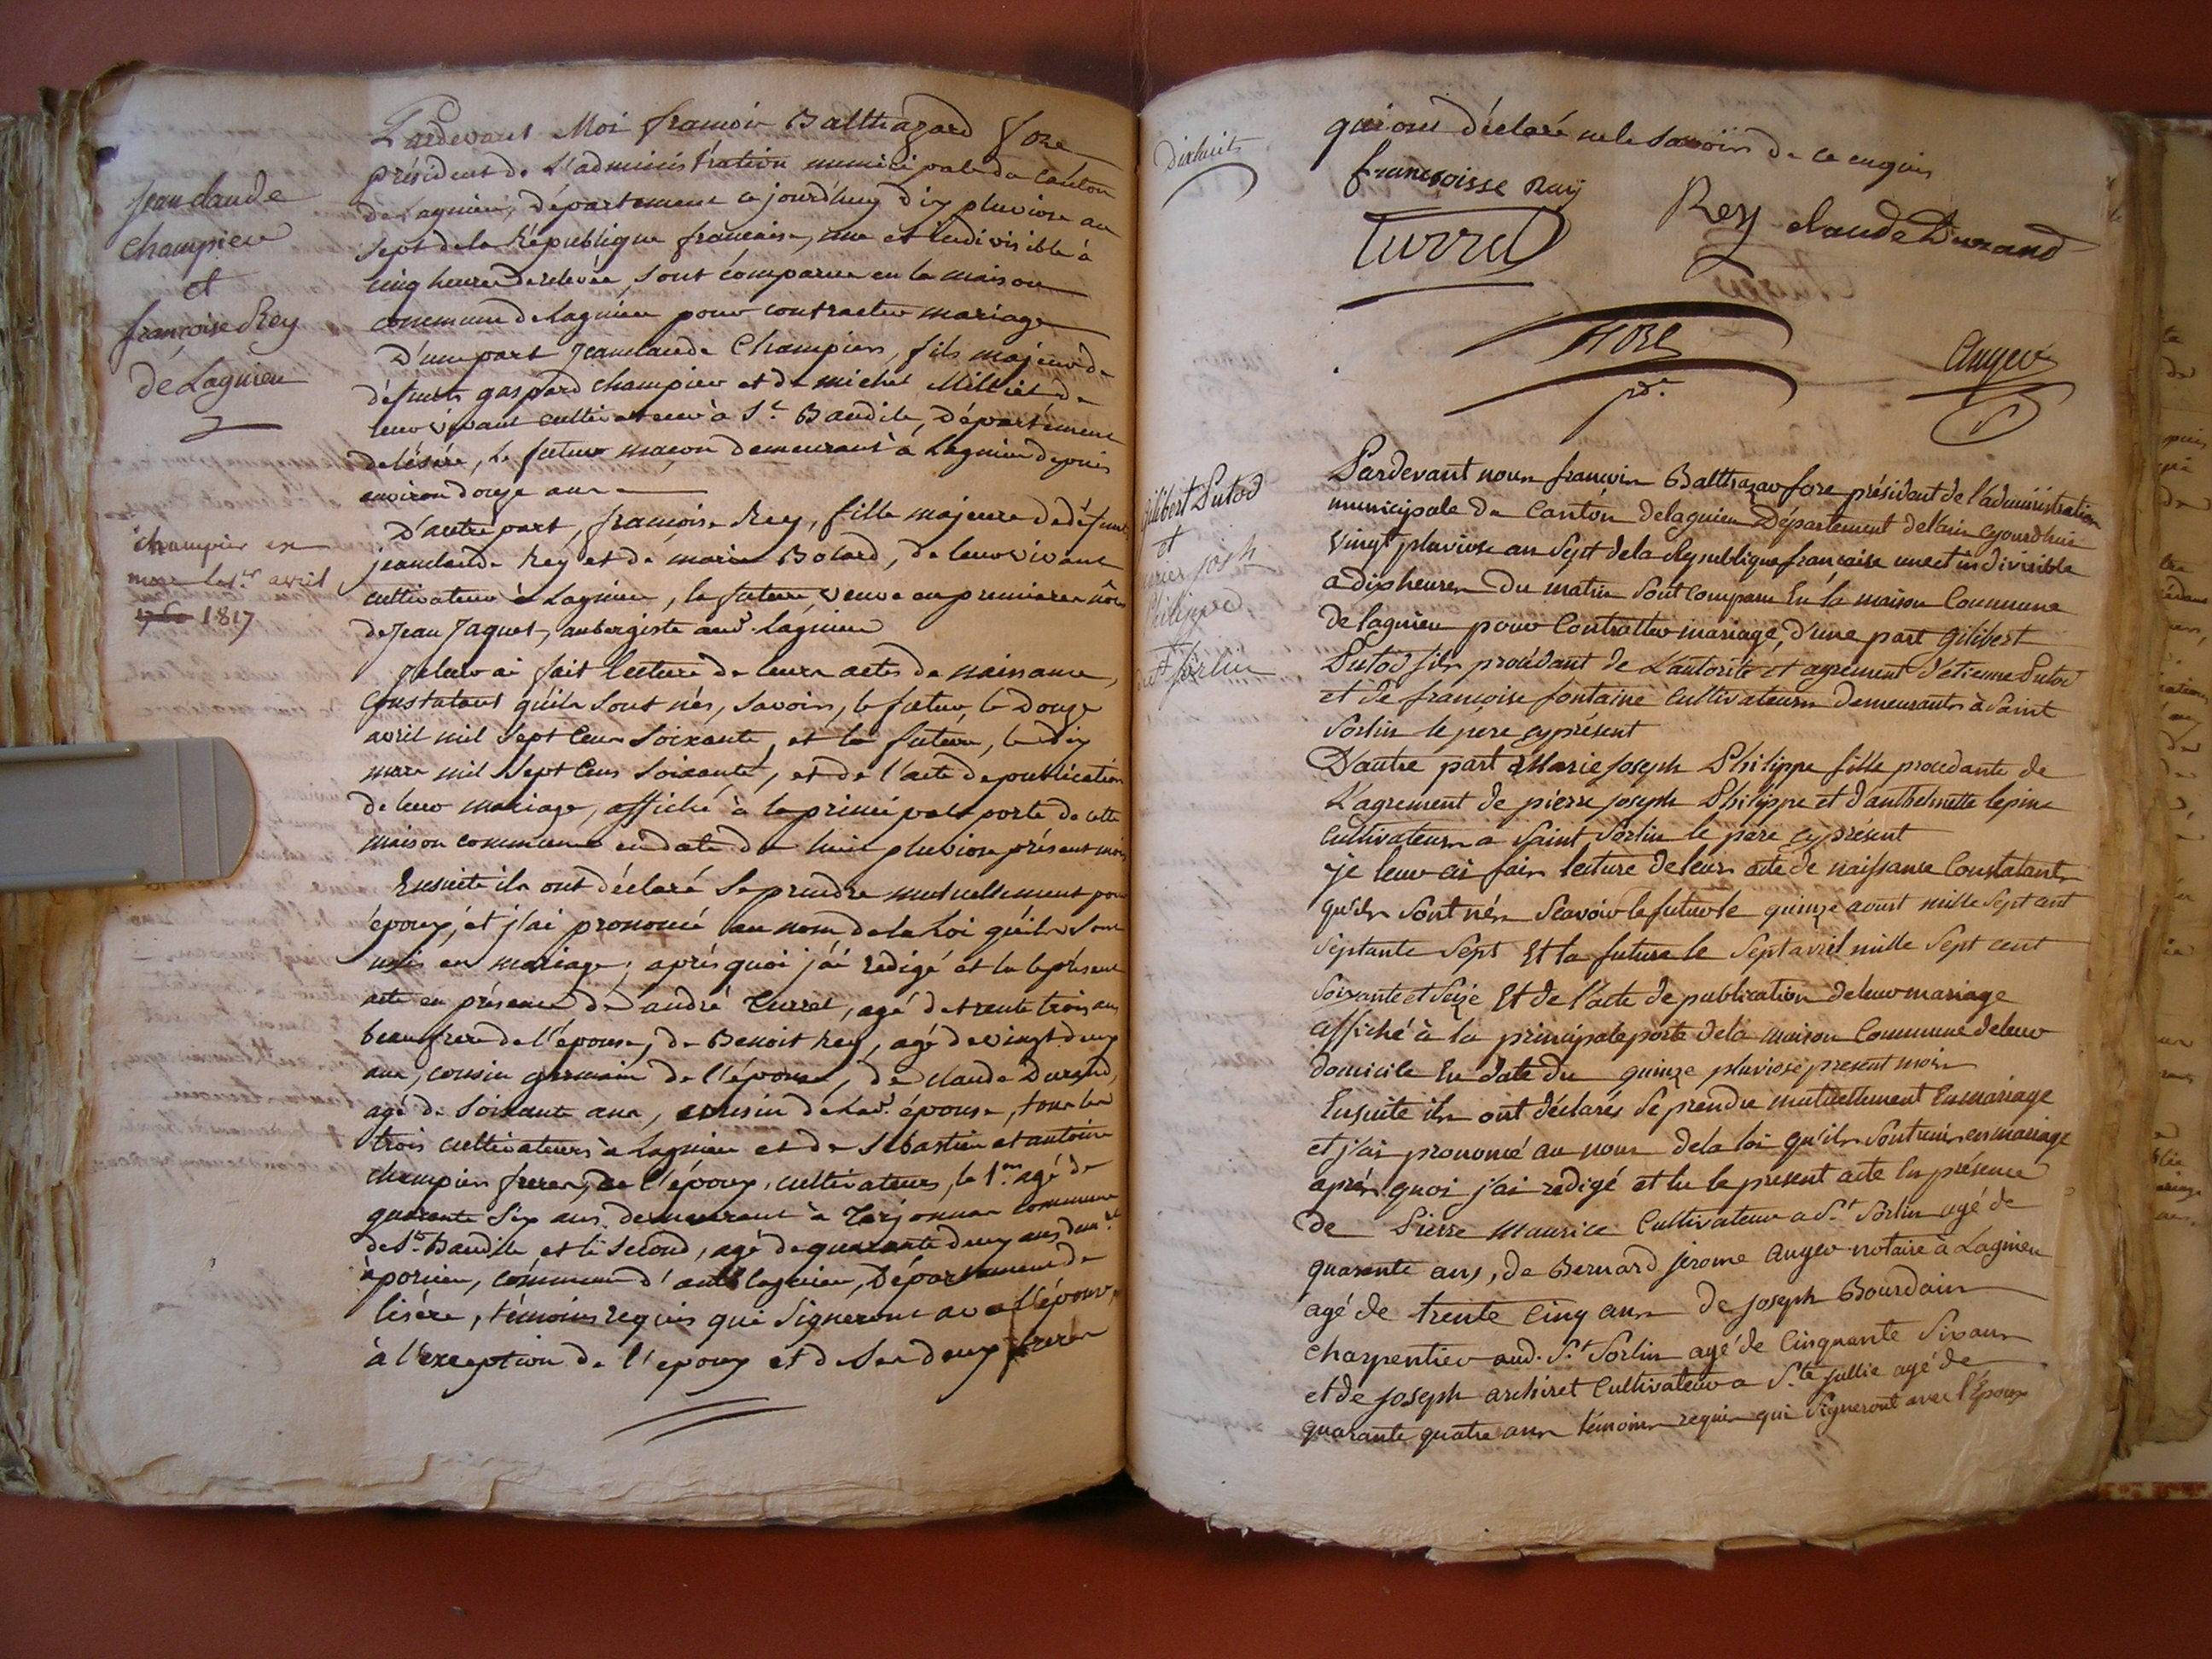 Jean claude
Champier
et
francoise Rey
de Lagnieu
champier est
mort le 1.er avril
1760 1817
Pardevant Moi francois Balthazard fore
président de L'administration municipale du canton
de Lagnieu, département ce jourd'huy dix pluviose an
sept de la République francaise, une et indivisible à
cinq heures de relevée, sont comparus en la maison
commune de Lagnieu pour contracter mariage
D'une part Jean claude Champier, fils majeur de
défunts gaspard champier et de michel Milliet, de
leur vivant cultivateur à S.t Baudile, Département
de lésère, Le futur maçon demeurant à Lagnieu depuis
environ douze ans
D'autre part, francoise Rey, fille majeure de défunt
jean claude Rey et de marie Bolard, de leur vivant
cultivateurs à Lagnieu, la future, veuve en premieres nôces
de Jean Jaquet, aubergiste aud. lagnieu
Je leur ai fait lecture de leurs actes de naissance,
constatant qu'ils sont nés, savoir, le futur, le Douze
avril mil sept Cens Soixante, et la future, le dix
mars mil sept Cens Soixante, et de l'acte de publication
de leur mariage, affiché à la principale porte de cette
maison commune en date du huit pluviose présent mois
Ensuite ils ont déclaré se prendre mutuellement pour
époux, et j'ai prononcé au nom de la Loi qu'ils sont
unis en mariage, après quoi j'ai redigé et lu le présent
acte en présence de andré Turrel, agé de trente trois ans
beaufrere de l'épouse, de Benoit Rey, agé de vingt deux
ans, cousin germain de l'épouse, de claude Durand,
agé de Soixante ans, cousin de lad. épouse, tous les
trois cultivateurs à Lagnieu et de Sebastien et antoine
champier freres, de l'époux, cultivateurs, le 1.er agé de
quarante six ans demeurant à Torjonnas commune
de S.t Baudile et le second, agé de quarante deux ans dem.t
à porcieu, commune d'amblagnieu, Département de
lisére, témoins requis qui signeront avec l'épouse,
à l'exception de l'epoux et de ses deux freres
Dixhuit
qui ont déclaré ne le savoir de ce enquis
francoisse Ray
Rey claude Durand
Turrel
FORE
pdt.
Auger
Gilibert Putod
et
marie josph
Philippe
de St Sorlin
Pardevant nous francois Balthazar fore président de l'administration
municipale du Canton de lagnieu Département de l'ain cejourdhui
vingt pluviose an Sept de la Republique francaise une et indivisible
a dix heures du matin sont comparu En la maison Commune
de lagnieu pour Contratter mariage, d'une part gilibert
Putod fils procédant de L'autorité et agrement d'etienne Putod
et de francoise fontaine Cultivateurs Demeurants à Saint
Sorlin le pere cy présent
D'autre part Marie Joseph Philippe fille procedante de
L'agrement de pierre joseph Philippe et d'anthelmette lepine
cultivateurs a Saint Sorlin le pere cy présent
je leur ai fais lecture de leurs acte de naissance Constatants
qu'ils sont nés Scavoir le futur le quinze aoust mille Sept ant
Septante Sept Et la future le Sept avril mille Sept cent
Soixante et Seize Et de l'acte de publication de leur mariage
affiché à la principale porte de la maison Commune de leur
domicile En date du quinze pluviose present mois
Ensuite ils ont déclarés Se prendre mutuellement En mariage
et j'ai prononcé au nom de la loi qu'ils sont unis en mariage
après quoi j'ai redigé et lu le present acte En présence
de Pierre maurice Cultivateur a S.t Sorlin agé de
quarante ans, de Bernard jerome auger notaire à Lagnieu
agé de trente cinq ans de joseph Bourdain
charpentier aud. S.t Sorlin agé de Cinquante Six ans
et de joseph archiret Cultivateur a S.te jullie agé de
quarante quatre ans témoins requis qui Signeront avec l'Epoux